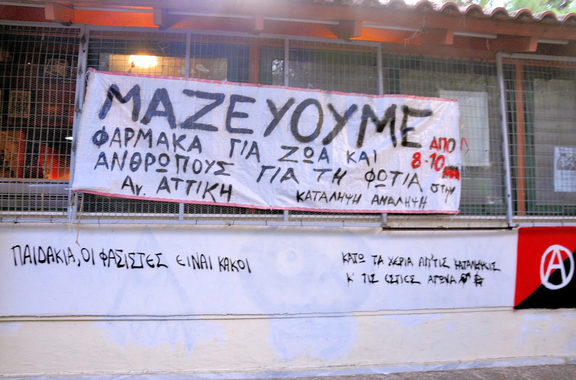 ΜΑΖΕΥΟΥΜΕ
ΦΑΡΜΑΚΑ ΓΙΑ ΖΩΑ ΚΑΙ
ΑΝΘΡΩΠΟΥΣ ΓΙΑ ΤΗ ΦΩΤΙΑ ΣΤΗΝ
ΑΝ. ΑΤΤΙΚΗ
ΑΠΟ
8-10
ΚΑΤΑΛΗΨΗ ΑΝΑΛΗΨΗ
ΠΑΙΔΑΚΙΑ, ΟΙ ΦΑΣΙΣΤΕΣ ΕΙΝΑΙ ΚΑΚΟΙ
ΚΑΤΩ ΤΑ ΧΕΡΙΑ ΑΠ'ΤΙΣ ΚΑΤΑΛΗΨΕΙΣ
Κ' ΤΙΣ ΕΣΤΙΕΣ ΑΓΩΝΑ
A